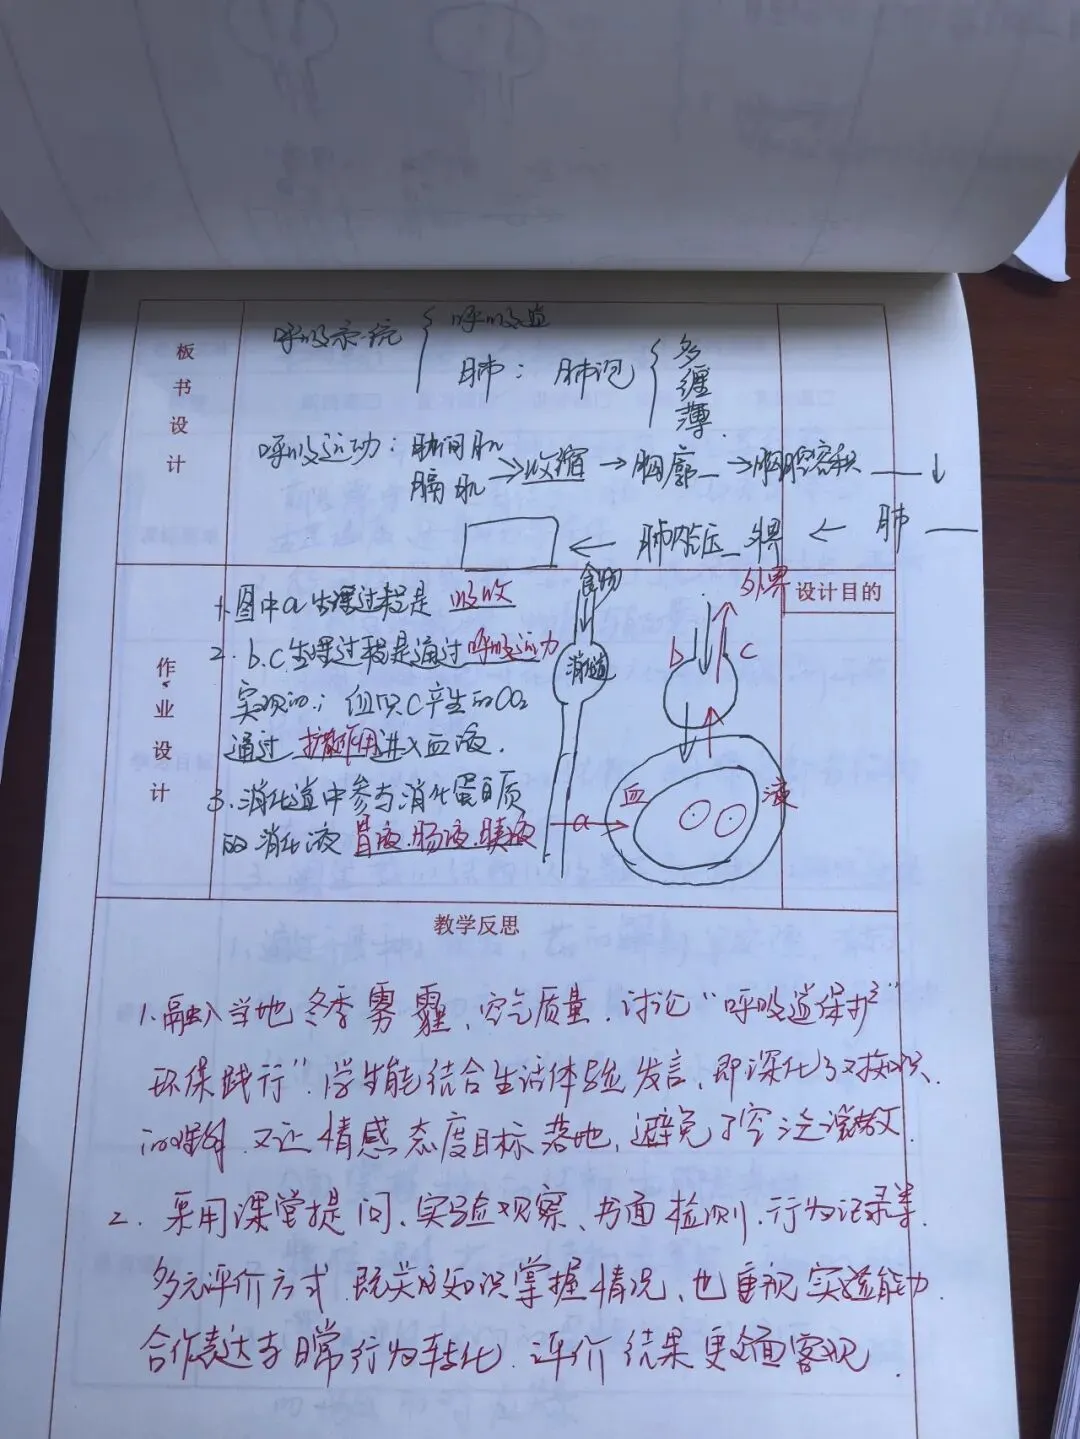 板书设计
呼吸系统 { 呼吸道
肺：肺泡 { 多 缠 薄
呼吸运动：肋间肌
膈肌 →收缩 →胸廓_ →胸腔容积 __↓
□ ← 肺内气压_外界 ← 肺 __
作业设计
设计目的
1.图中a生理过程是 吸收
2.b.c生理过程是通过呼吸运动
实现的；组织C产生的CO₂
通过 扩散作用进入血液.
3.消化道中参与消化蛋白质
的消化液 胃液.肠液.胰液
食物
消化道
外界
b
c
a
血 液
教学反思
1.融入当地冬季雾霾、空气质量.讨论“呼吸道保护
环保践行”.学生能结合生活体验发言、即深化了对知识
的理解.又让情感态度目标落地,避免了空泛说教.
2.采用课堂提问、实验观察、书面检测.行为记录等.
多元评价方式.既关注知识掌握情况、也重视实验能力.
合作表达与日常行为转化.评价结果更全面客观.